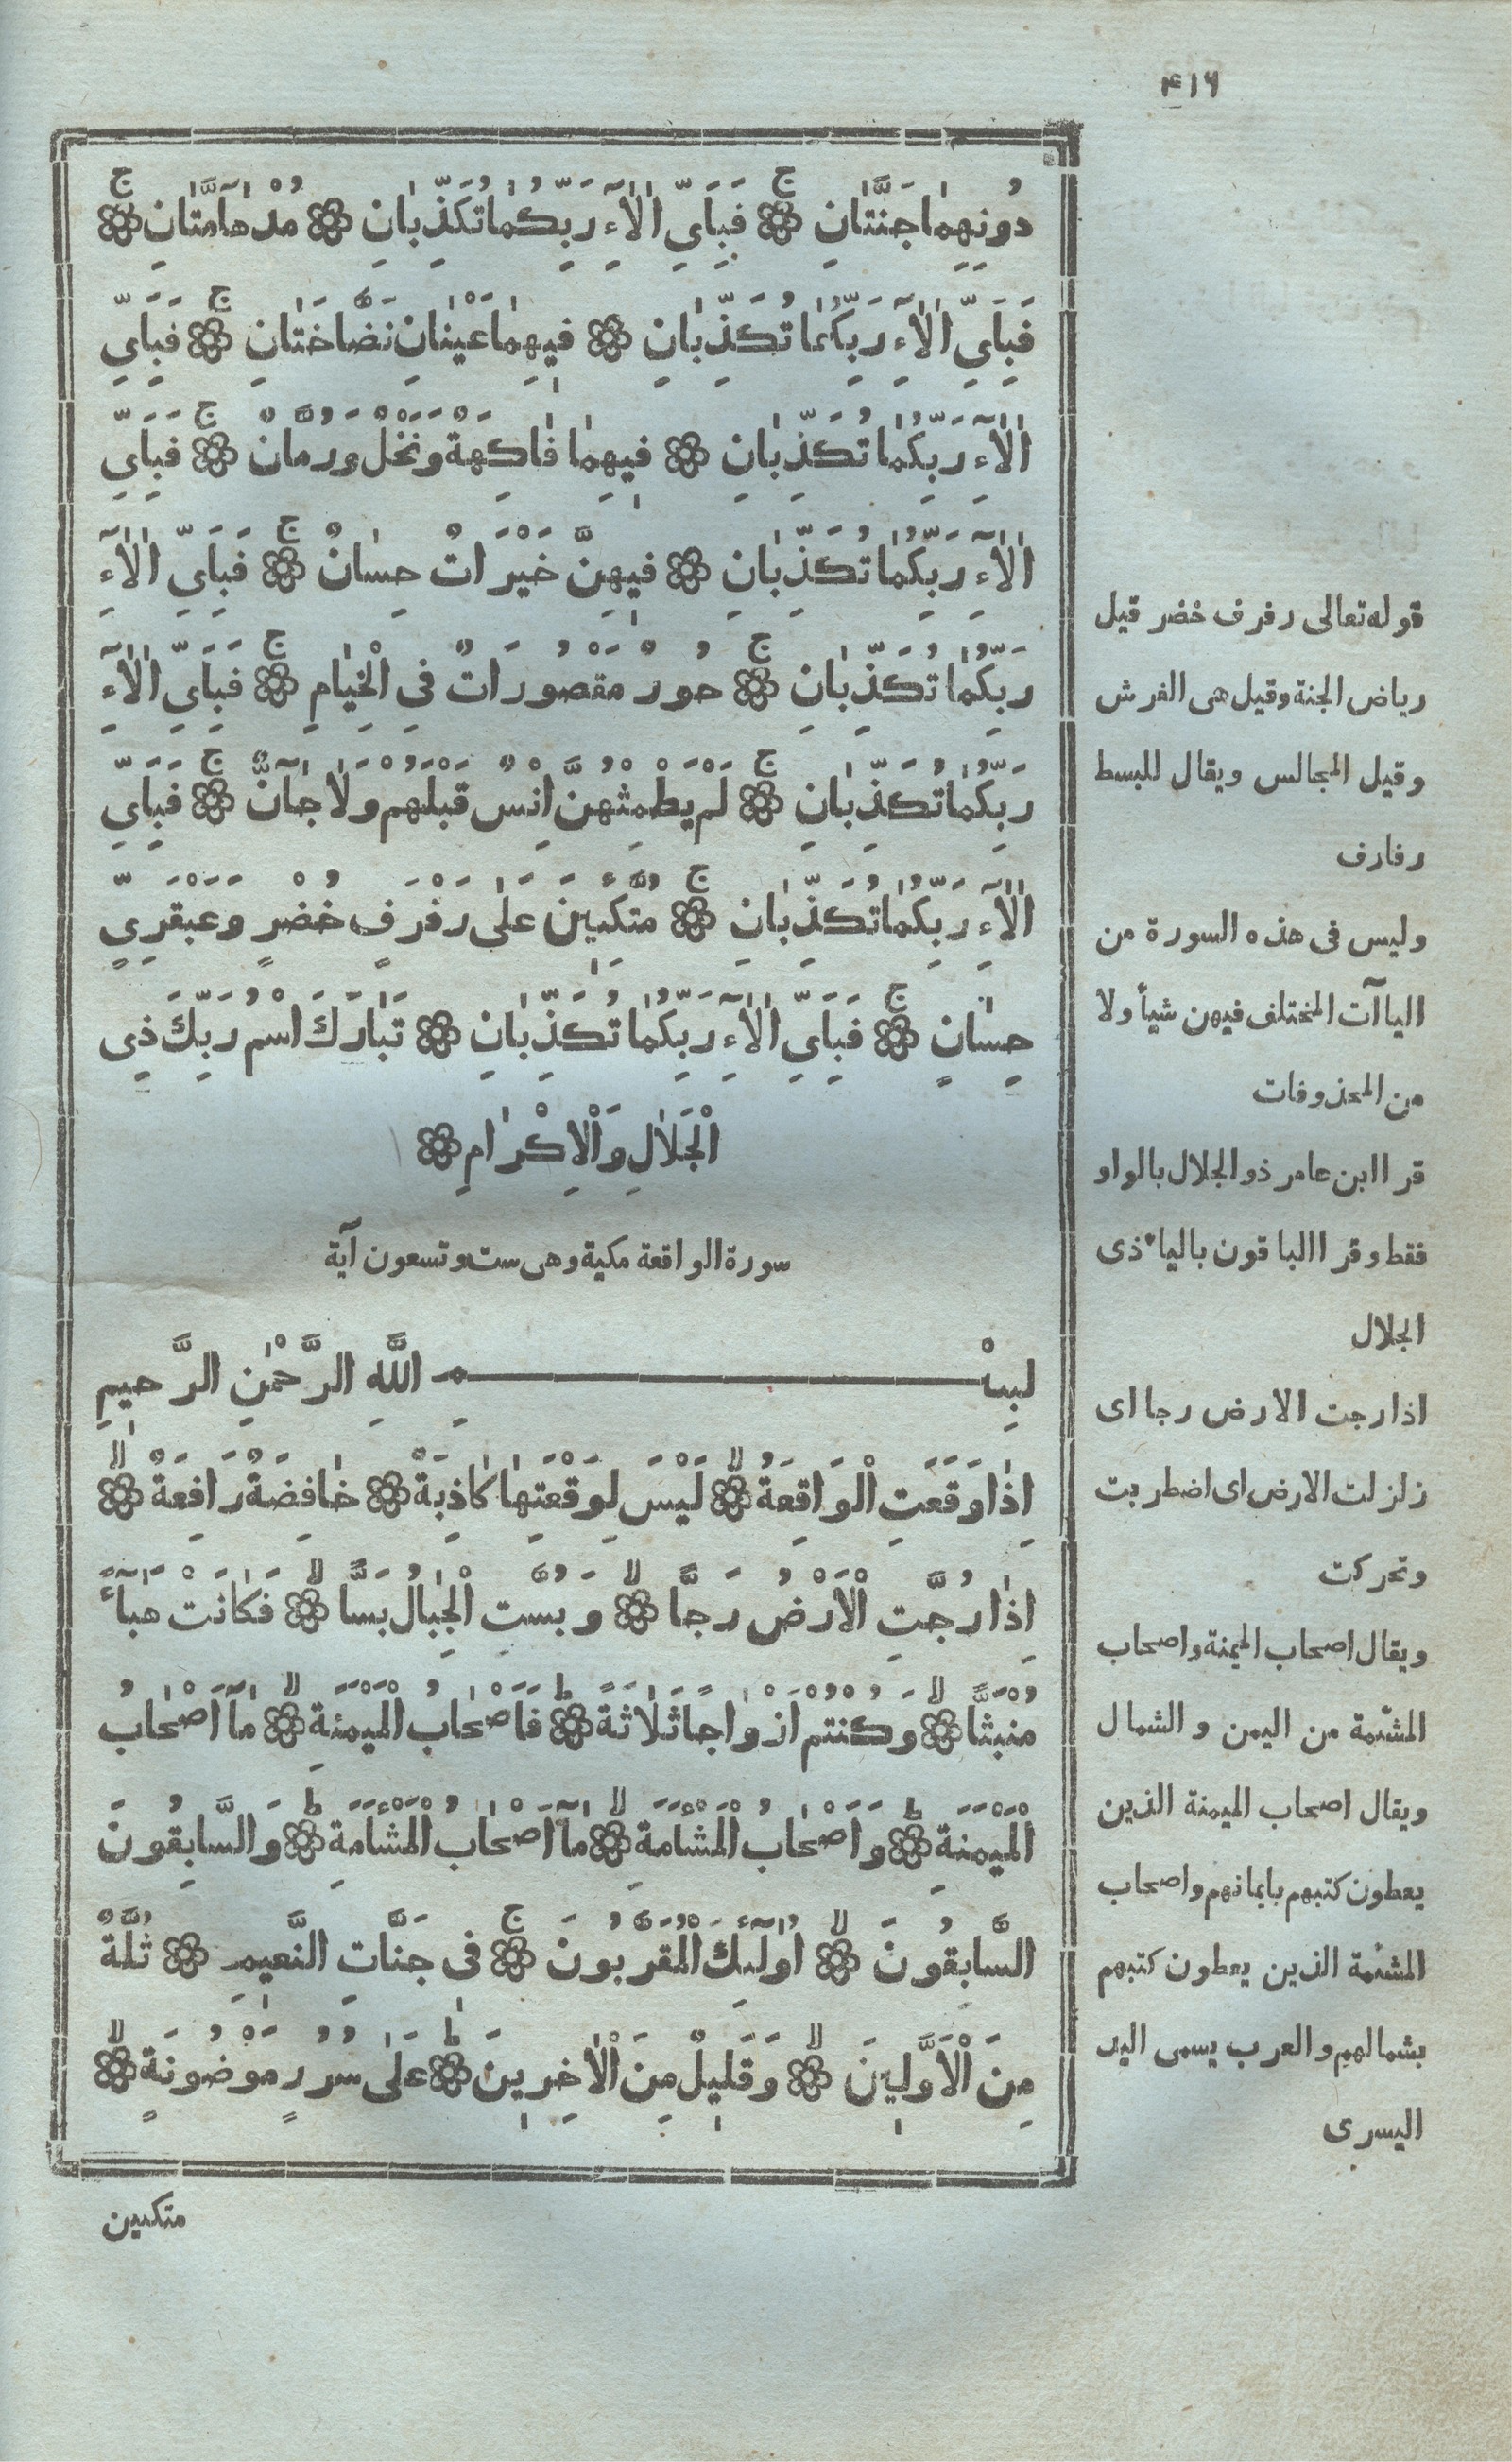 ۴۱۶
دُونِهِمٰا جَنَّتٰانِ ۚ فَبِاَىِّ اٰلٰآءِ رَبِّكُمٰا تُكَذِّبٰانِ مُدْهٰآمَّتٰانِ ۚ
فَبِاَىِّ اٰلٰآءِ رَبِّكُمٰا تُكَذِّبٰانِ فٖيهِمٰا عَيْنٰانِ نَضَّاخَتٰانِ ۚ فَبِاَىِّ
اٰلٰآءِ رَبِّكُمٰا تُكَذِّبٰانِ فٖيهِمٰا فٰاكِهَةٌ وَنَخْلٌ وَرُمَّانٌ ۚ فَبِاَىِّ
اٰلٰآءِ رَبِّكُمٰا تُكَذِّبٰانِ فٖيهِنَّ خَيْرَاتٌ حِسٰانٌ ۚ فَبِاَىِّ اٰلٰآءِ
رَبِّكُمٰا تُكَذِّبٰانِ ۚ حُورٌ مَقْصُورَاتٌ فِى الْخِيٰامِ ۚ فَبِاَىِّ اٰلٰآءِ
رَبِّكُمٰا تُكَذِّبٰانِ ۚ لَمْ يَطْمِثْهُنَّ اِنْسٌ قَبْلَهُمْ وَلٰا جٰآنٌّ ۚ فَبِاَىِّ
اٰلٰآءِ رَبِّكُمٰا تُكَذِّبٰانِ ۚ مُتَّكِـٖٔينَ عَلٰى رَفْرَفٍ خُضْرٍ وَعَبْقَرِىٍّ
حِسٰانٍ ۚ فَبِاَىِّ اٰلٰآءِ رَبِّكُمٰا تُكَذِّبٰانِ تَبٰارَكَ اسْمُ رَبِّكَ ذِى
الْجَلٰالِ وَالْاِكْرٰامِ
سورة الواقعة مكية وهى ست وتسعون آية
بِسْمِ اللَّهِ الرَّحْمٰنِ الرَّحٖيمِ
اِذٰا وَقَعَتِ الْوَاقِعَةُ ۙ لَيْسَ لِوَقْعَتِهٰا كٰاذِبَةٌ خٰافِضَةٌ رَافِعَةٌ ۙ
اِذٰا رُجَّتِ الْاَرْضُ رَجًّا ۙ وَبُسَّتِ الْجِبٰالُ بَسًّا ۙ فَكٰانَتْ هَبٰآءً
مُنْبَثًّا ۙ وَكُنْتُمْ اَزْوٰاجًا ثَلٰاثَةً ۗ فَاَصْحٰابُ الْمَيْمَنَةِ ۙ مٰآ اَصْحٰابُ
الْمَيْمَنَةِ ۗ وَاَصْحٰابُ الْمَشْاَمَةِ ۙ مٰآ اَصْحٰابُ الْمَشْاَمَةِ ۗ وَالسَّابِقُونَ
السَّابِقُونَ ۙ اُولٰٓئِكَ الْمُقَرَّبُونَ ۚ فٖى جَنَّاتِ النَّعٖيمِ ثُلَّةٌ
مِنَ الْاَوَّلٖينَ ۙ وَقَلٖيلٌ مِنَ الْاٰخِرٖينَ ۗ عَلٰى سُرُرٍ مَوْضُونَةٍ ۙ
متكـين
قوله تعالى رفرف خضر قيل
رياض الجنة وقيل هى الفرش
وقيل المجالس ويقال للبسط
رفارف
وليس فى هذه السورة من
الياآت المختلف فيهن شيأ ولا
من المحذوفات
قرا ابن عامر ذو الجلال بالواو
فقط وقرا الباقون بالياء ذى
الجلال
اذا رجت الارض رجا اى
زلزلت الارض اى اضطربت
وتحركت
ويقال اصحاب الميمنة واصحاب
المشئمة من اليمن والشمال
ويقال اصحاب الميمنة الذين
يعطون كتبهم بايمانهم واصحاب
المشئمة الذين يعطون كتبهم
بشمالهم والعرب يسمى اليد
اليسرى